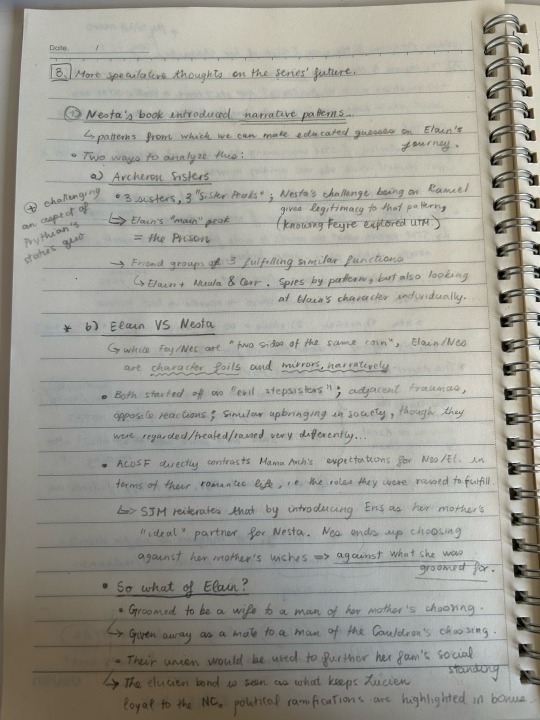 Date / 
3. More speculative thoughts on the series' future.
① Nesta's book introduced narrative patterns...
↳ patterns from which we can make educated guesses on Elain's
journey.
• Two ways to analyze this:
a) Archeron Sisters
• 3 sisters, 3 "Sister Peaks"; Nesta's challenge being on Ramiel
gives legitimacy to that pattern,
(knowing Feyre explored UTM)
↳ Elain's "main" peak
= the Prison
⊕ challenging
an aspect of
Prythian's
status quo
→ Friend groups of 3 fulfilling similar functions
↳ Elain + Nuala & Cerr. Spies by pattern, but also looking
at Elain's character individually.
* b) Elain VS Nesta
↳ while Fey/Nes are "two sides of the same coin", Elain/Nes
are character foils and mirrors, narratively
• Both started off as "evil stepsisters"; adjacent traumas,
opposite reactions; similar upbringing in society, though they
were regarded/treated/raised very differently...
• ACOSF directly contrasts Mama Arch's expectations for Nes/El. in
terms of their romantic life, i.e. the roles they were raised to fulfill.
↳ SJM reiterates that by introducing Eris as her mother's
"ideal" partner for Nesta. Nes ends up choosing
against her mother's wishes => against what she was
groomed for.
• So what of Elain?
• Groomed to be a wife to a man of her mother's choosing.
↳ Given away as a mate to a man of the Cauldron's choosing.
• Their union would be used to further her fam's social
standing
↳ The elucien bond is seen as what keeps Lucien
loyal to the NC. political ramifications are highlighted in bonus